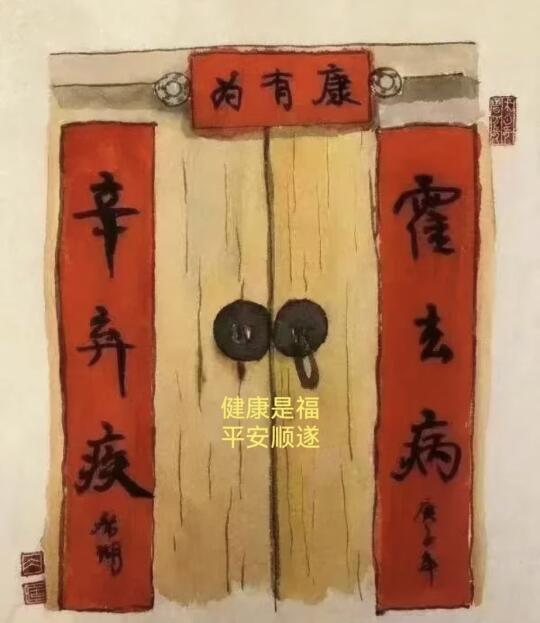 康有为
霍去病
庚子年
辛弃疾
健康是福
平安顺遂